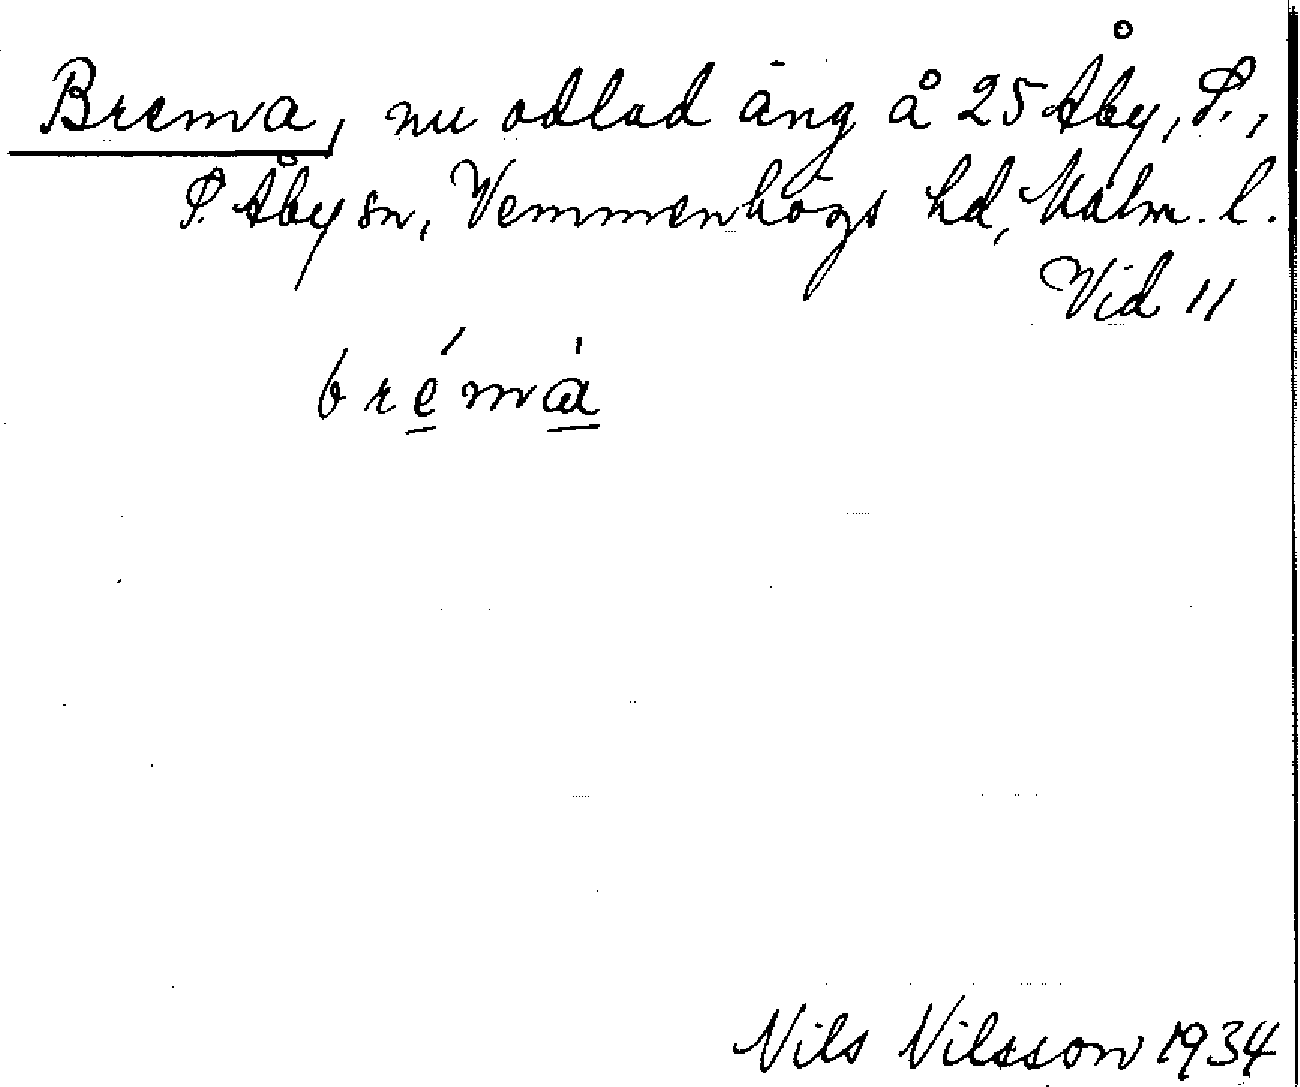 Brema, nu odlad äng å 25 Åby, S.,
S. Åby sn, Vemmenhögs hd, Malm. l.
Vid 11
bre̲´mà̲
Nils Nilsson 1934